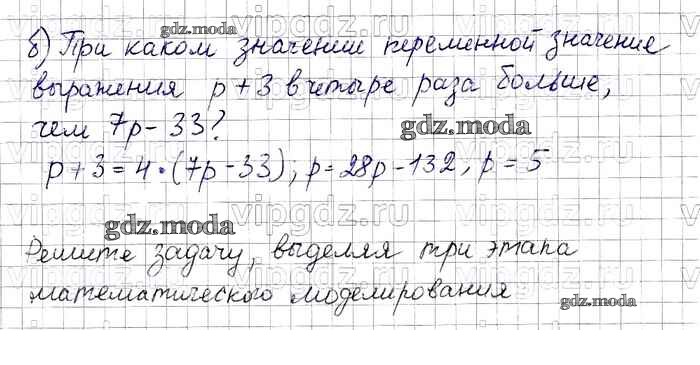 б) При каком значении переменной значение
выражения p + 3 в четыре раза больше,
чем 7p - 33?
p + 3 = 4 · (7p - 33); p = 28p - 132, p = 5
Решите задачу, выделяя три этапа
математического моделирования
gdz.moda
gdz.moda
gdz.moda
gdz.moda
vipgdz.ru
vipgdz.ru
vipgdz.ru